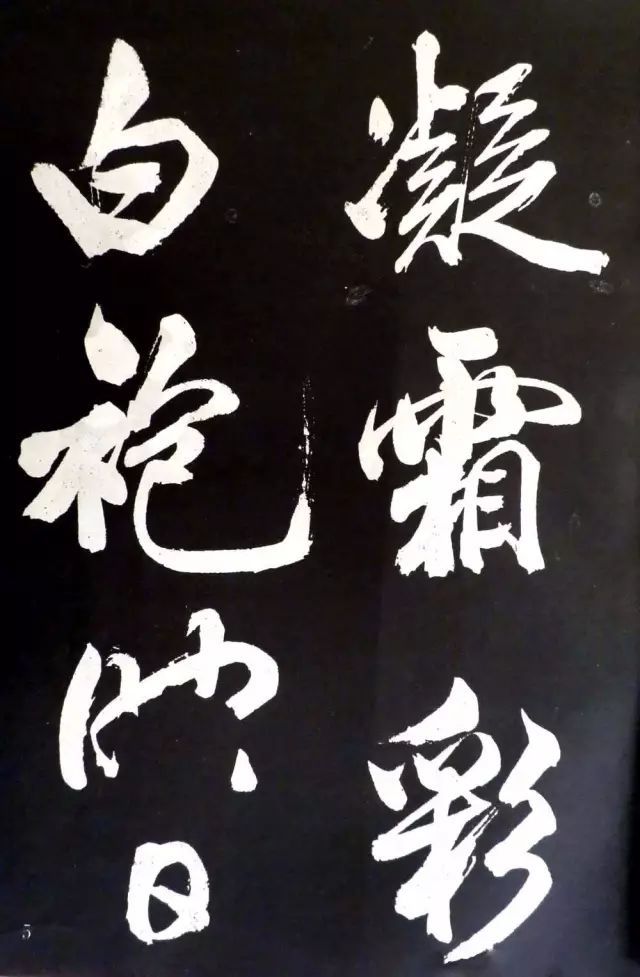 凝霜彩
白袍映日
5